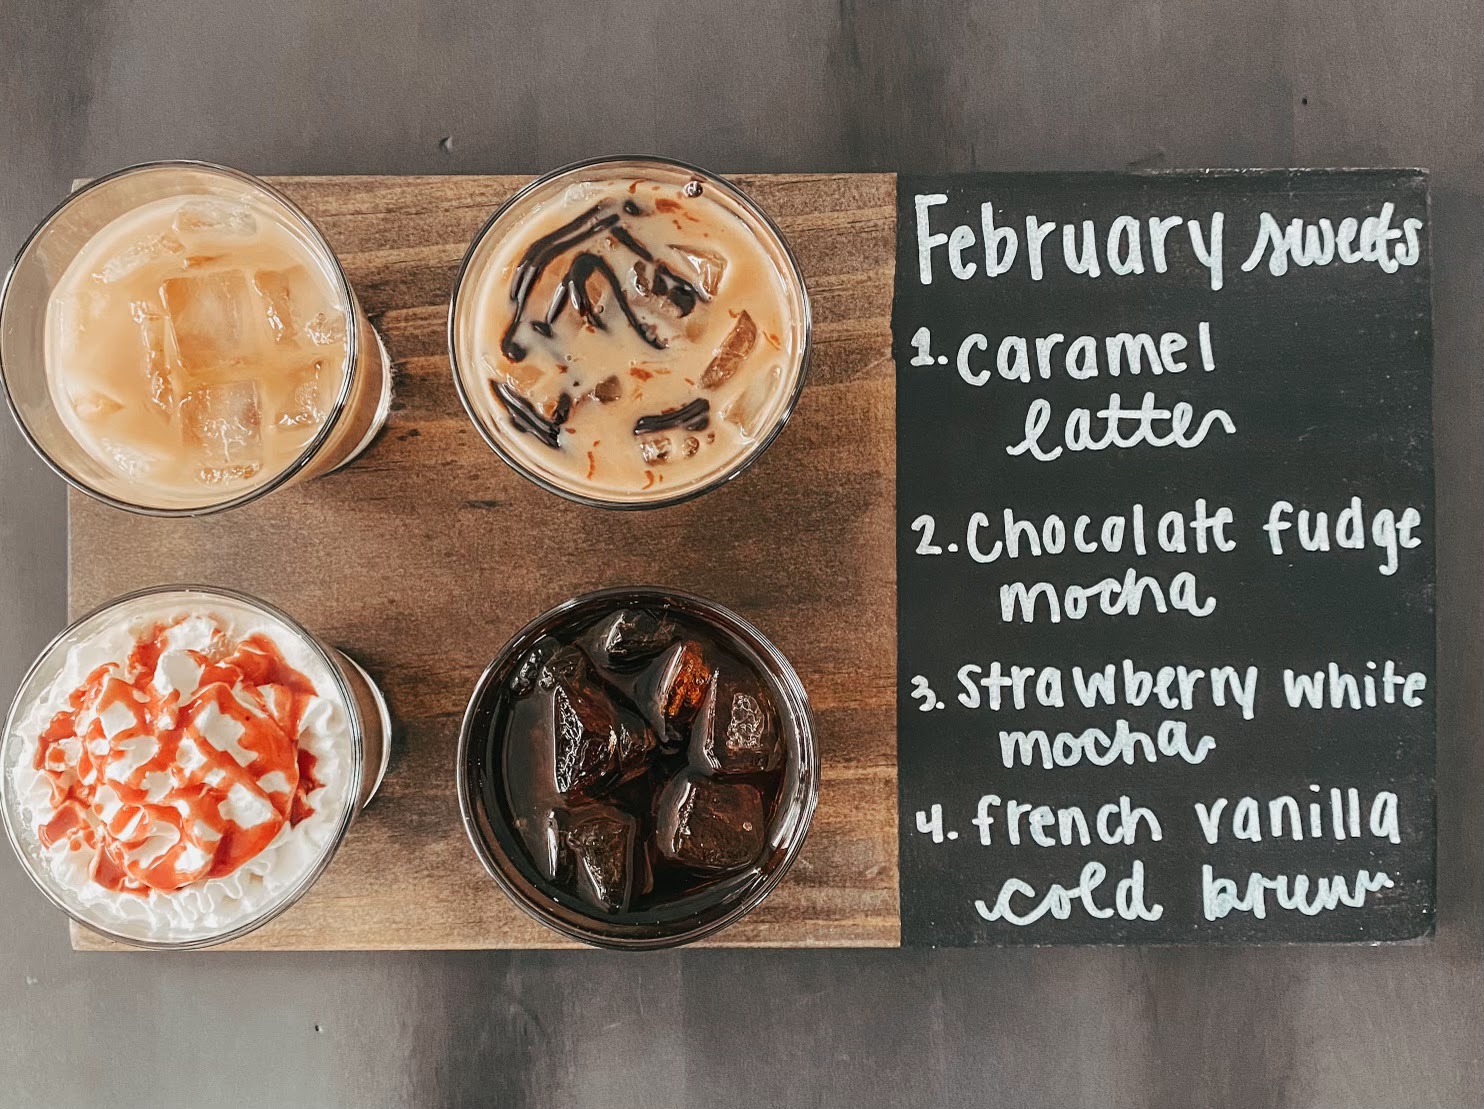 February sweets
1. caramel
latte
2. chocolate fudge
mocha
3. strawberry white
mocha
4. french vanilla
cold brew